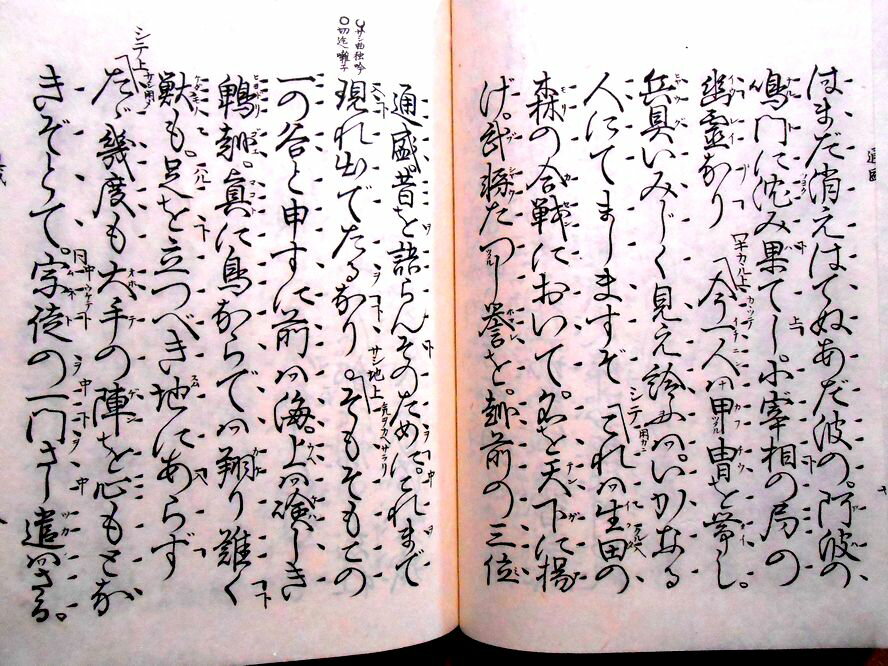 はまだ消えはてぬあだ波の。阿波の
鳴門に沈み果てし。小宰相の局の
幽霊なり ワキカルル上 今一人は甲冑を帯し。
兵具いみじく見え給ふは。いかなる
人にてましますぞ シテ これは生田の
森の合戦において。名を天下に揚
げ。武将たつし誉を。越前の三位
通盛。昔を語らんそのために。これまで
○サシ曲独吟
○切迄囃子
現れ出でたるなり。サシ地上 そもそもこの
一の谷と申すに前は海。上は険しき
鵯越。真に鳥ならでは翔り難く
獣も。足を立つべき地にあらず
シテ上 たゞ幾度も大手の陣を心もとな
きぞとて。宗徒の一門さし遣はさる。